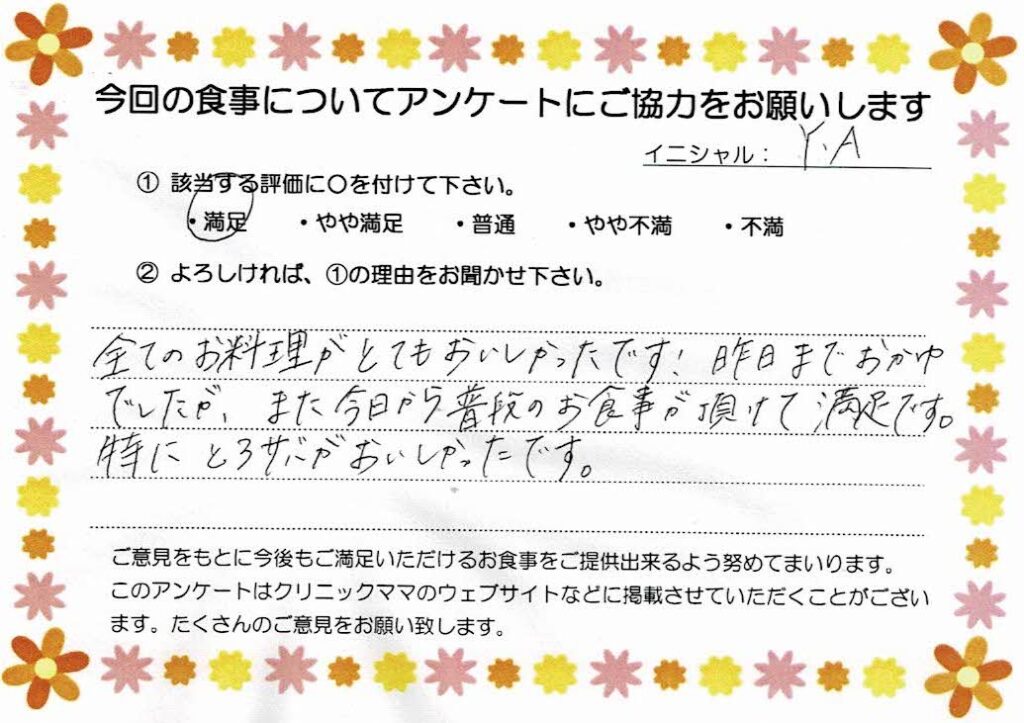 今回の食事についてアンケートにご協力をお願いします
イニシャル： Y.A
① 該当する評価に〇を付けて下さい。
・満足 ・やや満足 ・普通 ・やや不満 ・不満
② よろしければ、①の理由をお聞かせ下さい。
全てのお料理がとてもおいしかったです! 昨日までおかゆ
でしたが、また今日から普段のお食事が頂けて満足です。
特にとろサバがおいしかったです。
ご意見をもとに今後もご満足いただけるお食事をご提供出来るよう努めてまいります。
このアンケートはクリニックママのウェブサイトなどに掲載させていただくことがござい
ます。たくさんのご意見をお願い致します。